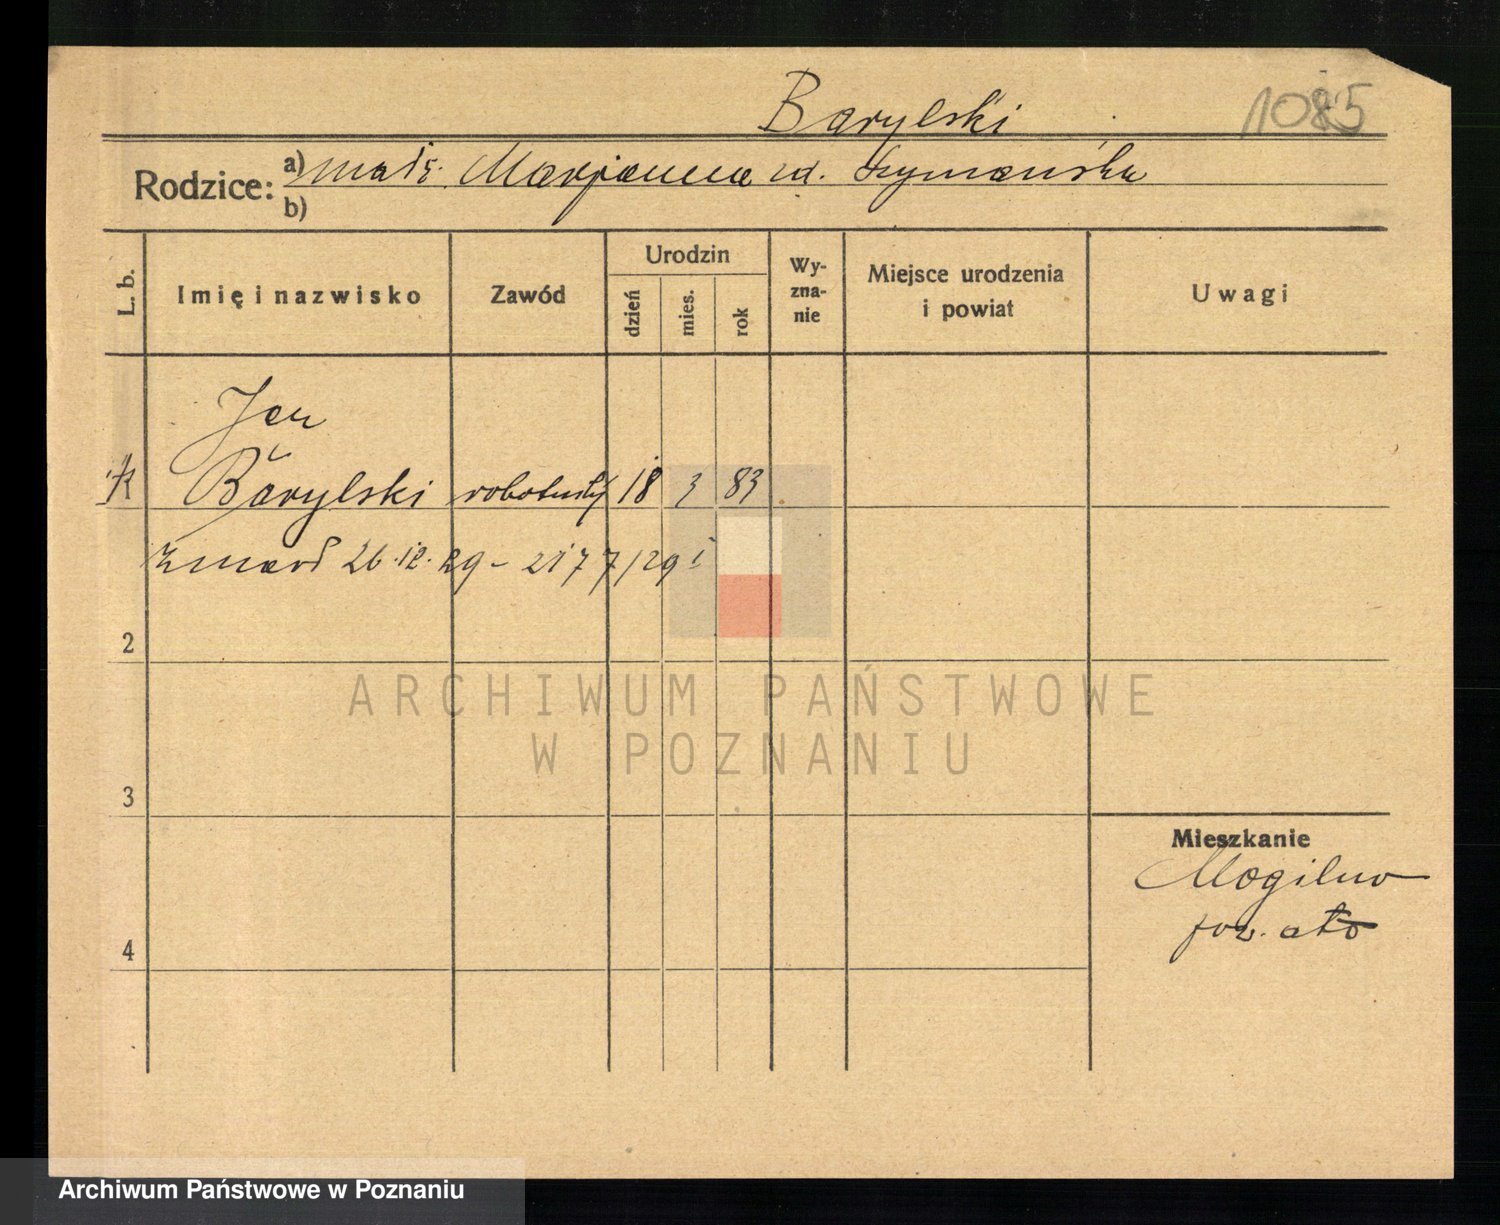 Barylski 1085
Rodzice: a) małż. Marjanna ur. Szymańska
b)
L. b. Imię i nazwisko Zawód Urodzin dzień mies. rok Wy-zna-nie Miejsce urodzenia i powiat Uwagi
Jan
Barylski robotnik 18 3 83
zmarł 26.12.29 - 2177/29 I
2
ARCHIWUM PAŃSTWOWE
W POZNANIU
3
Mieszkanie
Mogilno
pow.
4
Archiwum Państwowe w Poznaniu